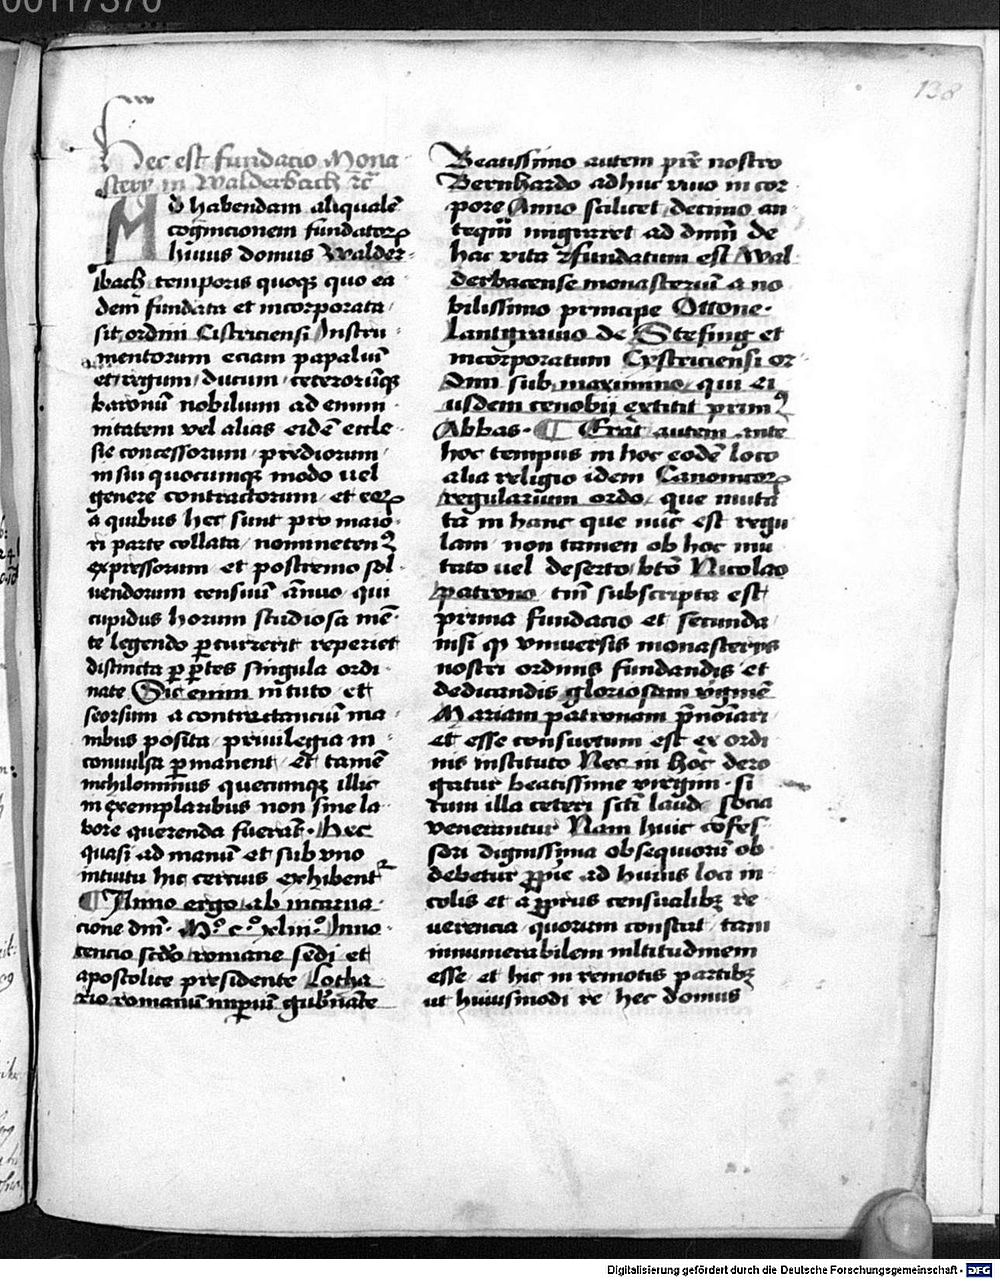 00117370
138
Hec est fundacio Mona
stery in Walderbach ⁊c̄
Ad habendam aliqualē
cognicionem fundatorꝝ
huius domus Walder-
bach temporis quoqꝫ quo ea
dem fundata et incorporata
sit ordini Cisterciensi Instru
mentorum eciam papaliū
et regum ducum ceterorūqꝫ
baronū nobilium ad emuni
nitatem vel alias eidē eccle
sie concessorum prediorum
in sui quocumqꝫ modo uel
genere contractorum et eoꝝ
a quibus hec sunt pro maio
ri parte collata nominetenꝰ
expressorum et postremo sol
uendorum censuū ānuo qui
cupidus horum studiosa mē
te legendo ꝑcurrerit reperiet
distincta ꝑ ꝑtes singula ordi
nate Sic enim in tuto et
seorsim a contractanciū ma
nibus posita priuilegia in
conuulsa ꝑmanent et tamē
nichilominus quecumqꝫ illic
in exemplaribus non sine la
bore querenda fuerāt Hec
quasi ad manū et sub vno
intuitu hic cercius exhibent᷑
¶ Anno ergo ab incarna
cione dn̄i Mº cº xliiiº Inno
cencio scd̄o romane sedi et
apostolice presidente Lotha
rio romanū imperiū gub̄nāte
Beatissimo autem pr̄e nostro
Bernhardo adhuc viuo in cor
pore Anno scilicet decimo an
teqm̄ migraret ad dnm̄ de
hac vita fundatum est Wal
derbacense monasteriū a no
bilissimo principe Ottone
Lantgrauio de Stefing et
incorporatum Cysterciensi or
dini sub maximino qui ei
usdem cenobij extitit primꝰ
Abbas ¶ Erat autem ante
hoc tempus in hoc eodē loco
alia religio idem Canonicorꝝ
regularium ordo que muta
ta in hanc que nūc est regu
lam non tamen ob hoc mu
tato uel deserto bt̄o Nicolao
patrono tm̄ subscripta est
prima fundacio et secunda
nisi qꝫ vniuersis monasterys
nostri ordinis fundandis et
dedicandis gloriosam v̄ginē
Mariam patronam p̄no͞iari
et esse consuetum est ex ordi
nis instituto Nec in hoc dero
gatur beatissime virgini si
cum illa ceteri sc̄ti laude socia
venerantur Nam huic cōfes
sori dignissima obsequiorū ob
debetur ꝓpie ad huius loci in
colis et a ꝓprys censualibꝫ re
uerencia quorum constat tam
innumerabilem mltitudinem
esse et hic in remotis partibꝫ
ut huiusmodi re hec domus
Digitalisierung gefördert durch die Deutsche Forschungsgemeinschaft - DFG